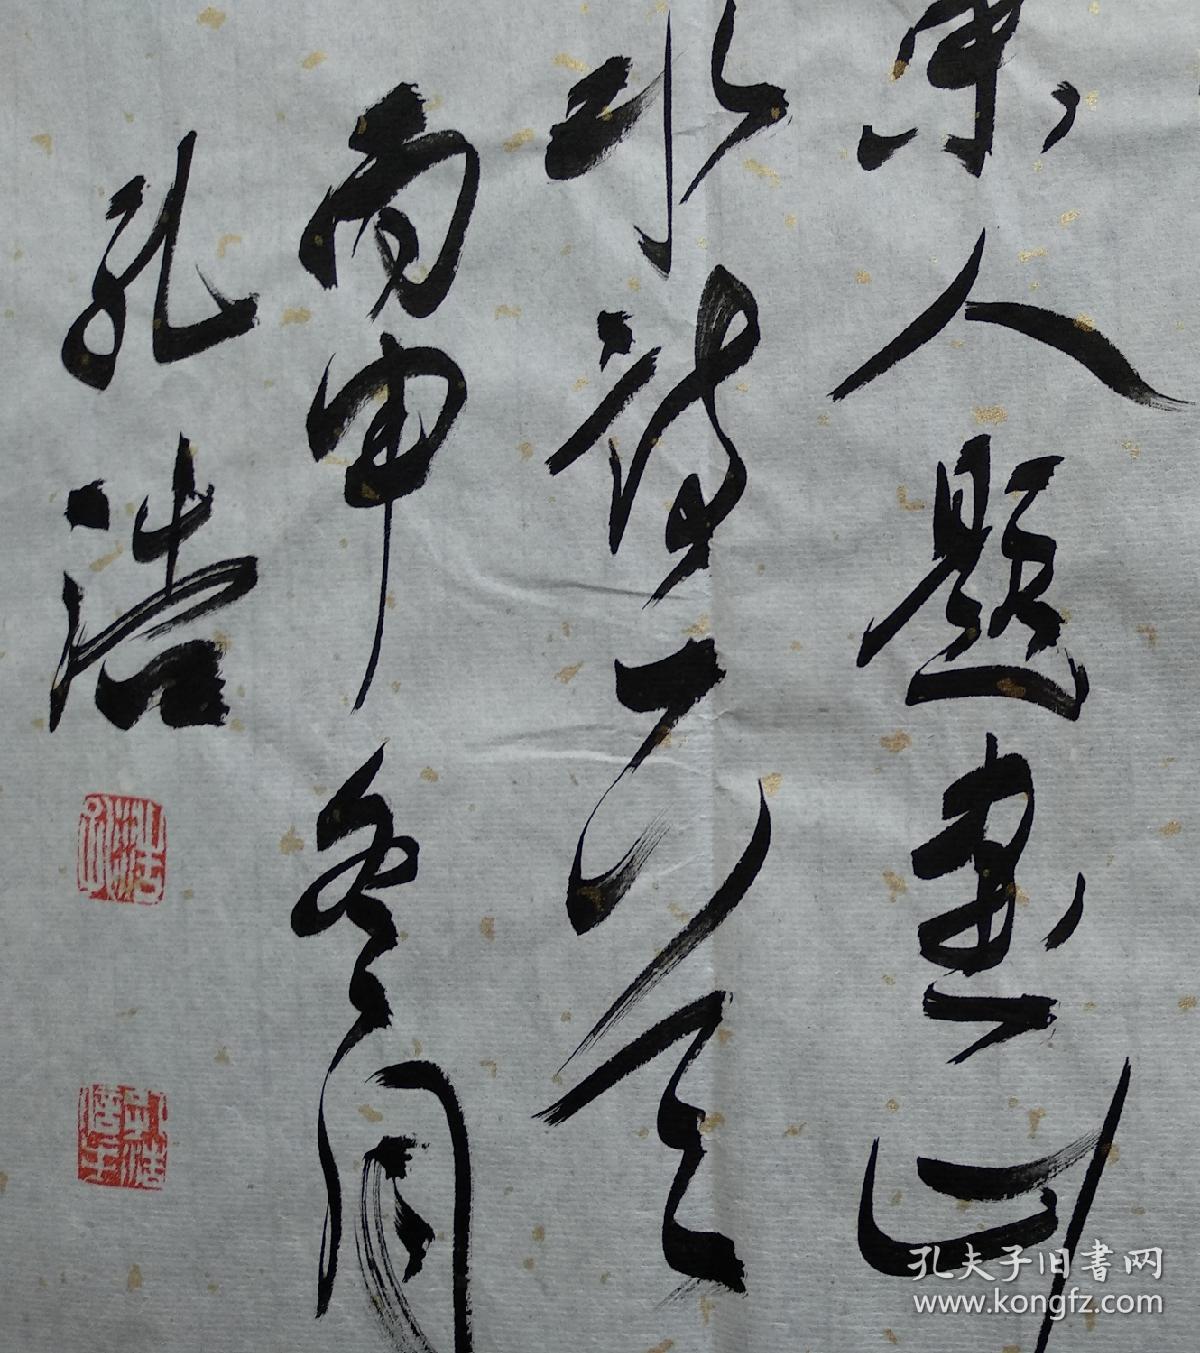 宋人题画山
水诗六首
丙申冬月
孔浩
孔夫子旧书网
www.kongfz.com